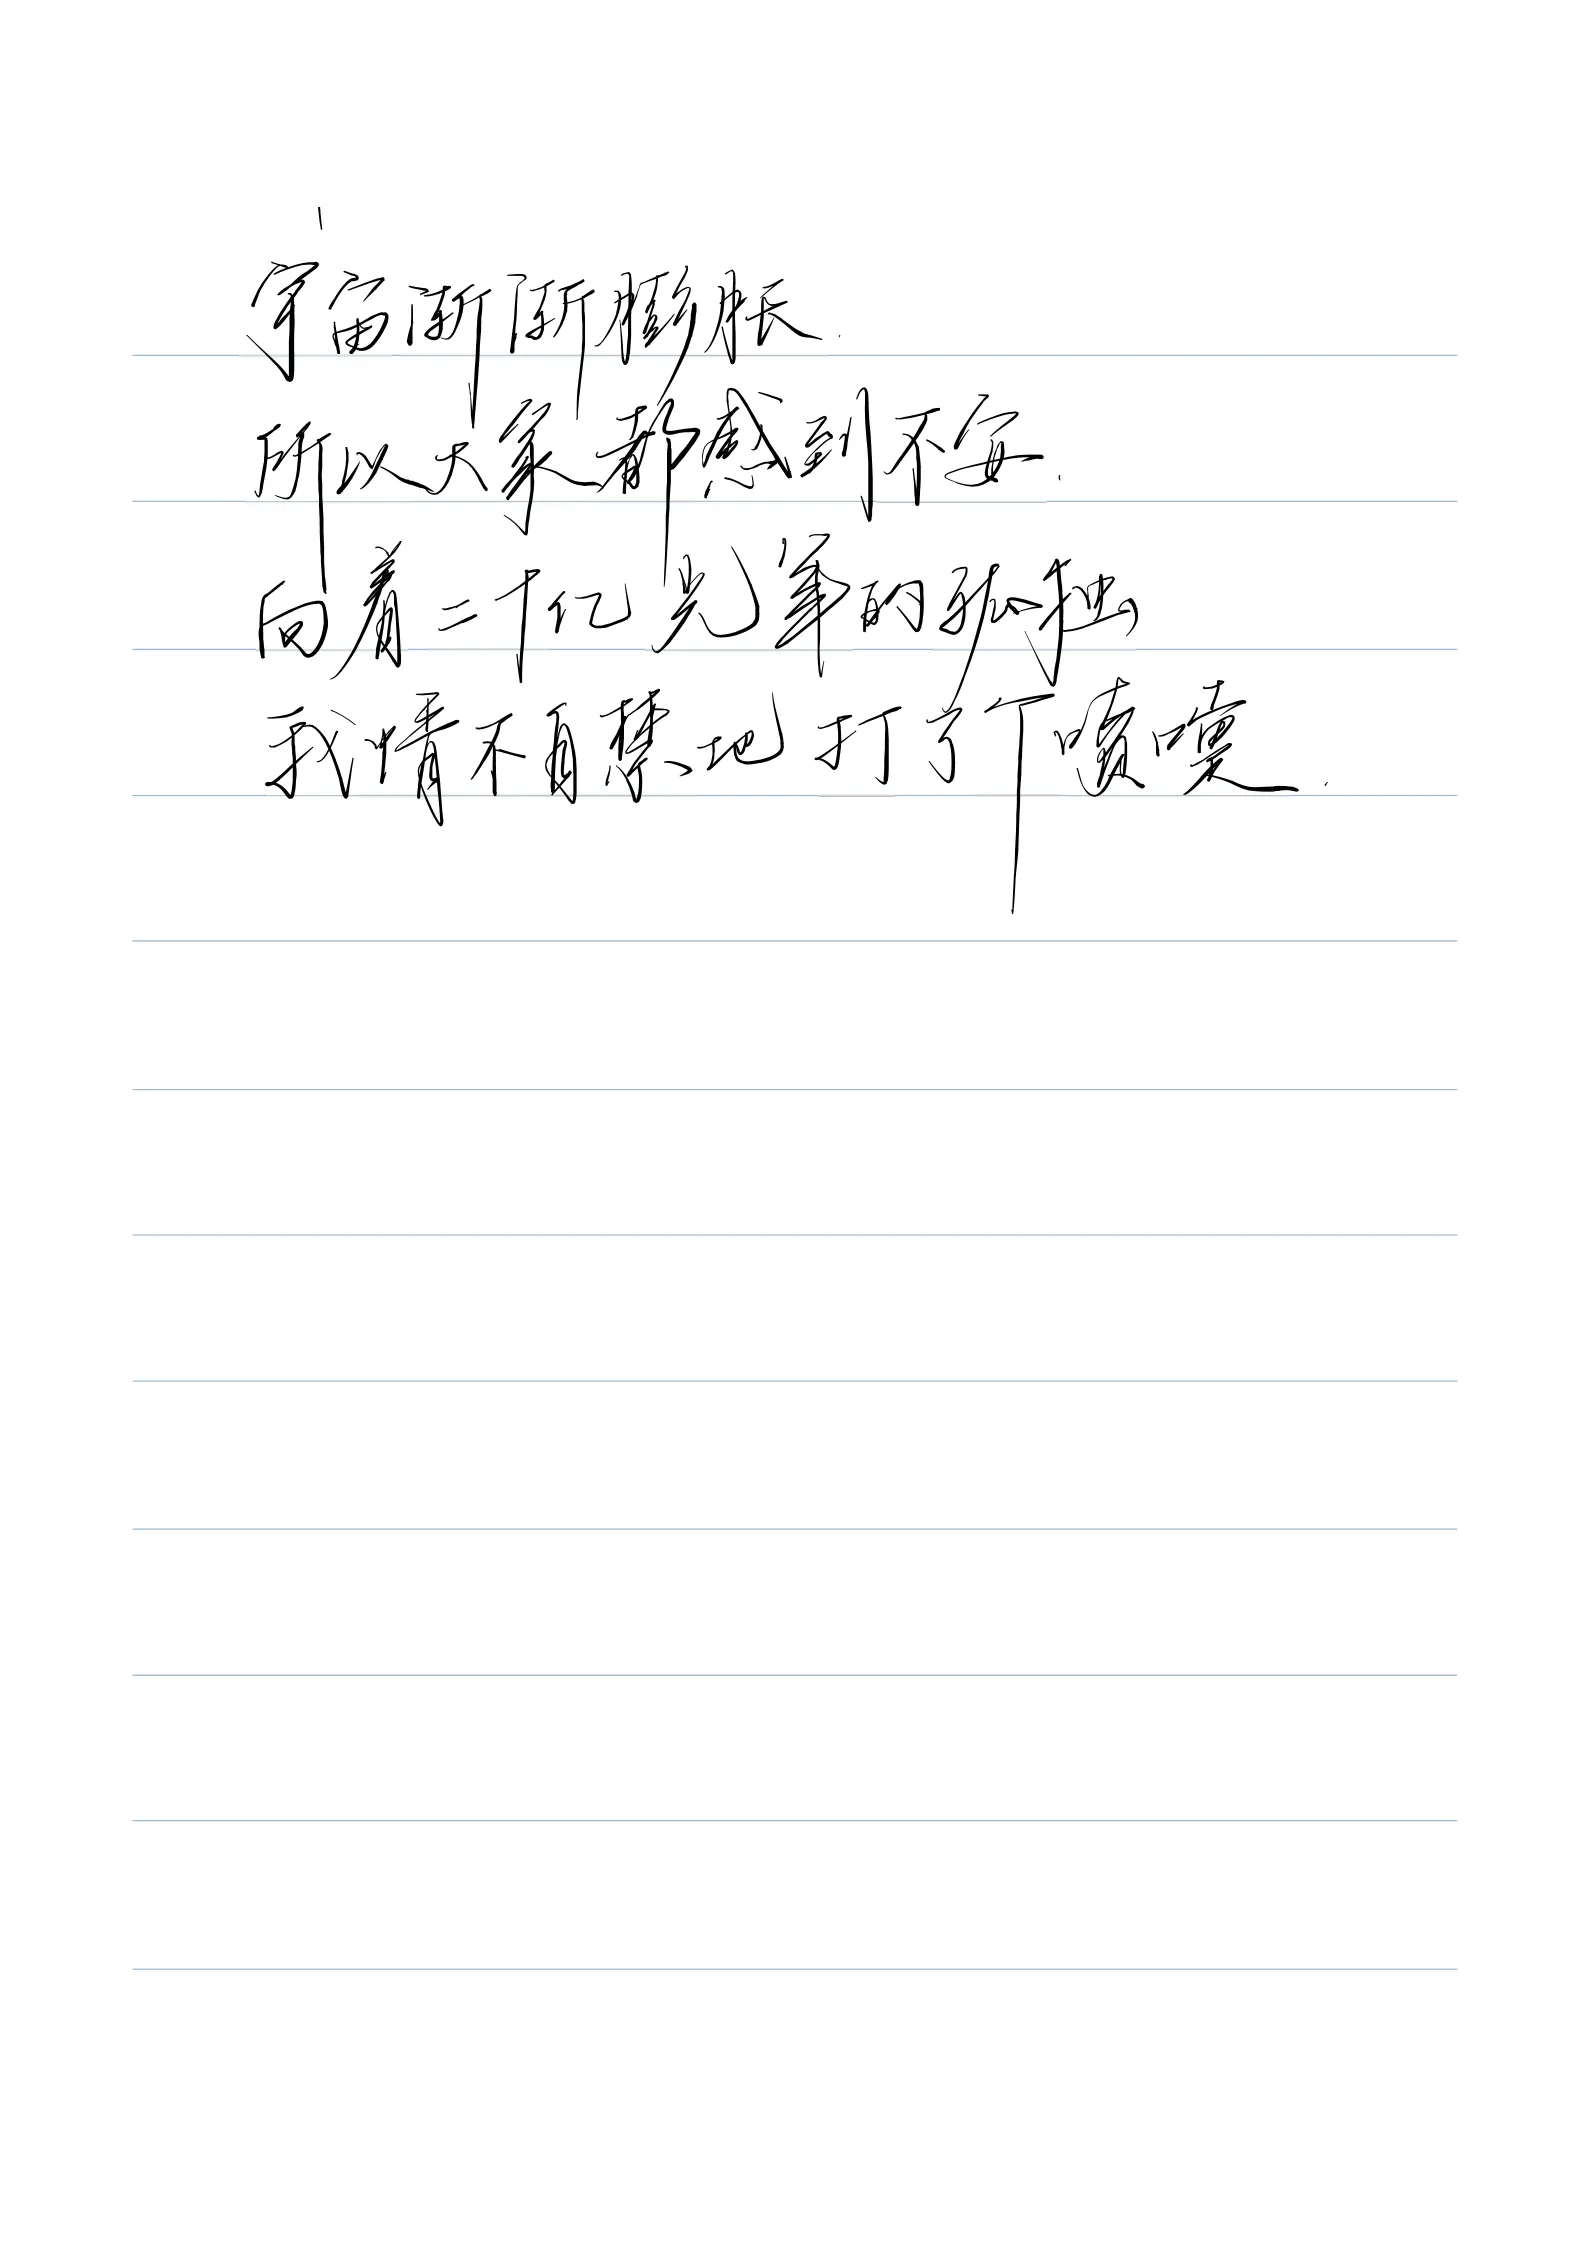 宇宙渐渐膨胀.
所以大家都感到不安.
向着二十亿光年的孤独
我情不自禁地打了个喷嚏.